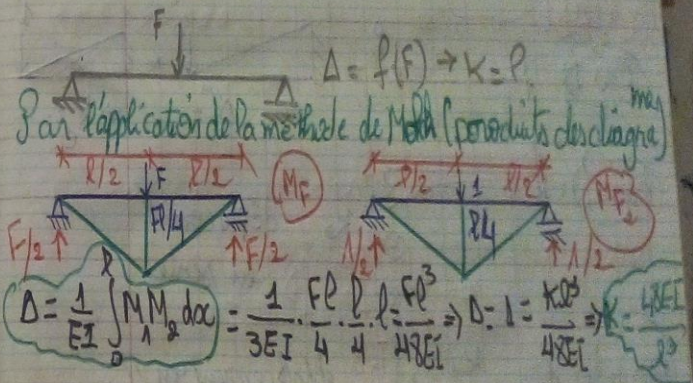 F
Δ = f(F) → K = ?
Par l'application de la méthode de Mohr (produits des diagrammes)
l/2 l/2 l/2 l/2
F MF 1 MF1
Fl/4 l/4
F/2 F/2 1/2 1/2
Δ = 1/EI ∫₀ˡ M₁M₂ dx = 1/3EI · Fl/4 · l/4 · l = Fl³/48EI ⇒ Δ = 1 = Kl³/48EI ⇒ K = 48EI/l³